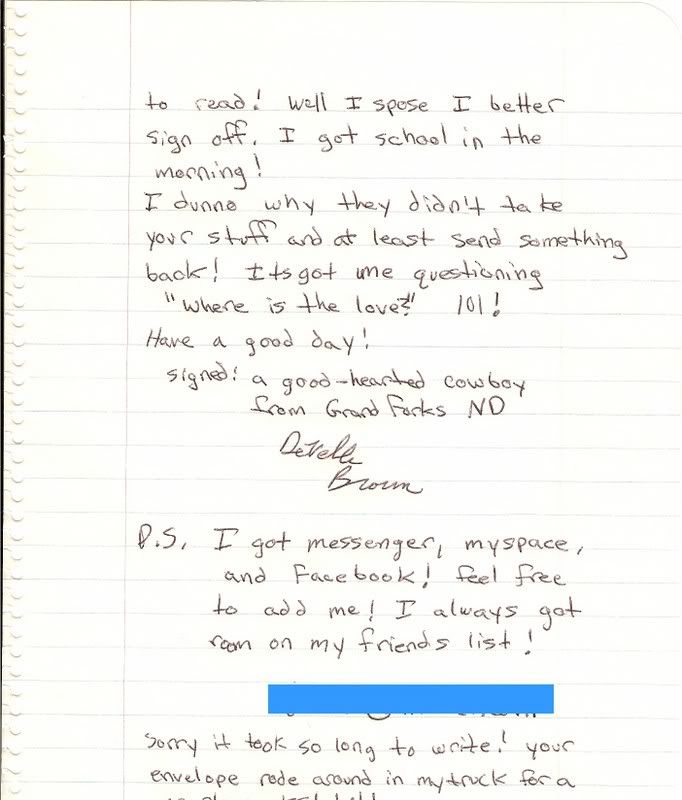 to read! Well I spose I better
sign off. I got school in the
morning!
I dunno why they didn't take
your stuff and at least send something
back! Its got me questioning
"Where is the love?" lol!
Have a good day!
signed: a good-hearted cowboy
from Grand Forks ND
Brown
P.S. I got messenger, myspace,
and Facebook! feel free
to add me! I always got
room on my friends list!
Sorry it took so long to write! your
envelope rode around in my truck for a